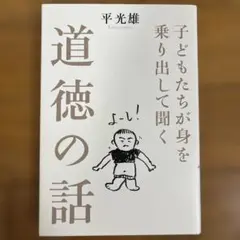 平 光雄
子どもたちが身を
乗り出して聞く
道徳の話
よーし!